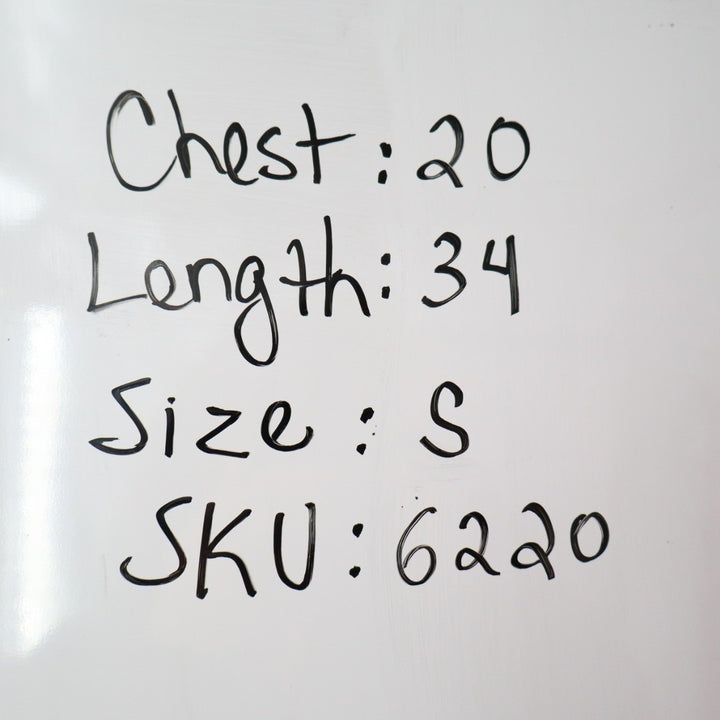 Chest: 20
Length: 34
Size: S
SKU: 6220